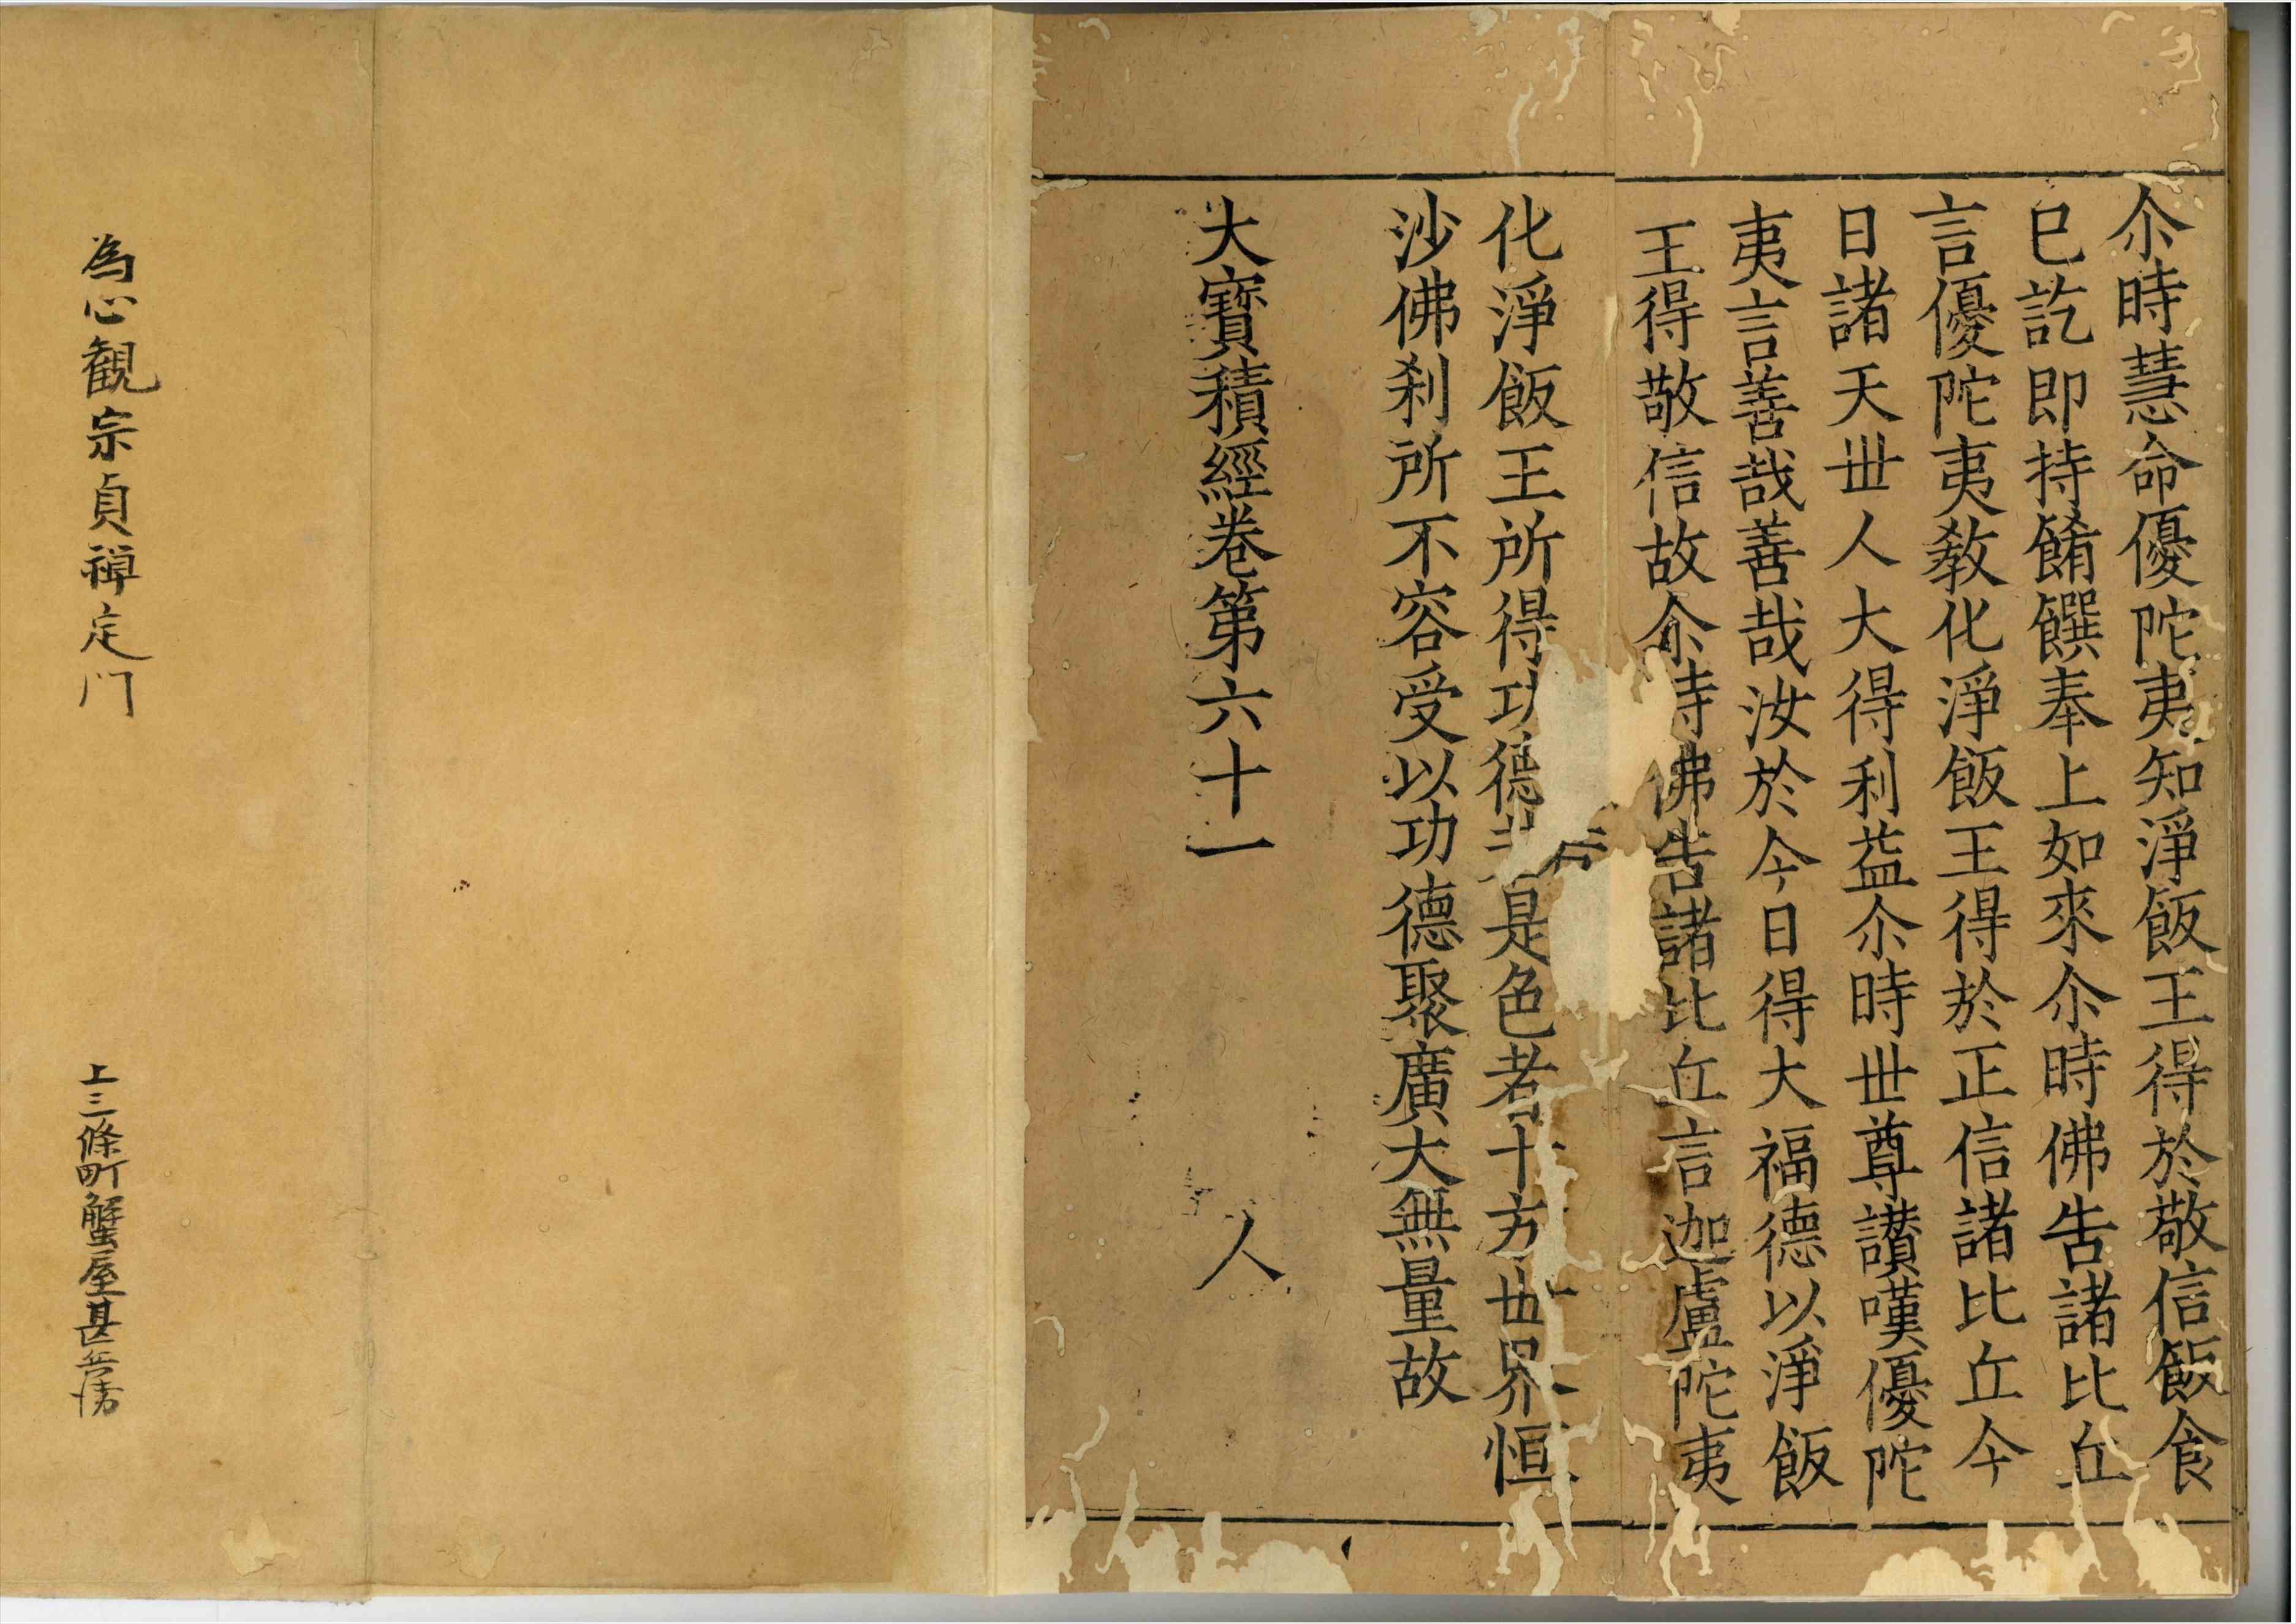 尒時慧命優陀夷知淨飯王得於敬信飯食
已訖即持餚饌奉上如來尒時佛告諸比丘
言優陀夷教化淨飯王得於正信諸比丘今
日諸天世人大得利益尒時世尊讃嘆優陀
夷言善哉善哉汝於今日得大福德以淨飯
王得敬信故尒時佛告諸比丘言迦盧陀夷
化淨飯王所得功德若是色者十方世界恒
沙佛刹所不容受以功德聚廣大無量故
大寶積經卷第六十一 人
為心觀宗貞禅定門
上三條町蟹屋甚兵衛